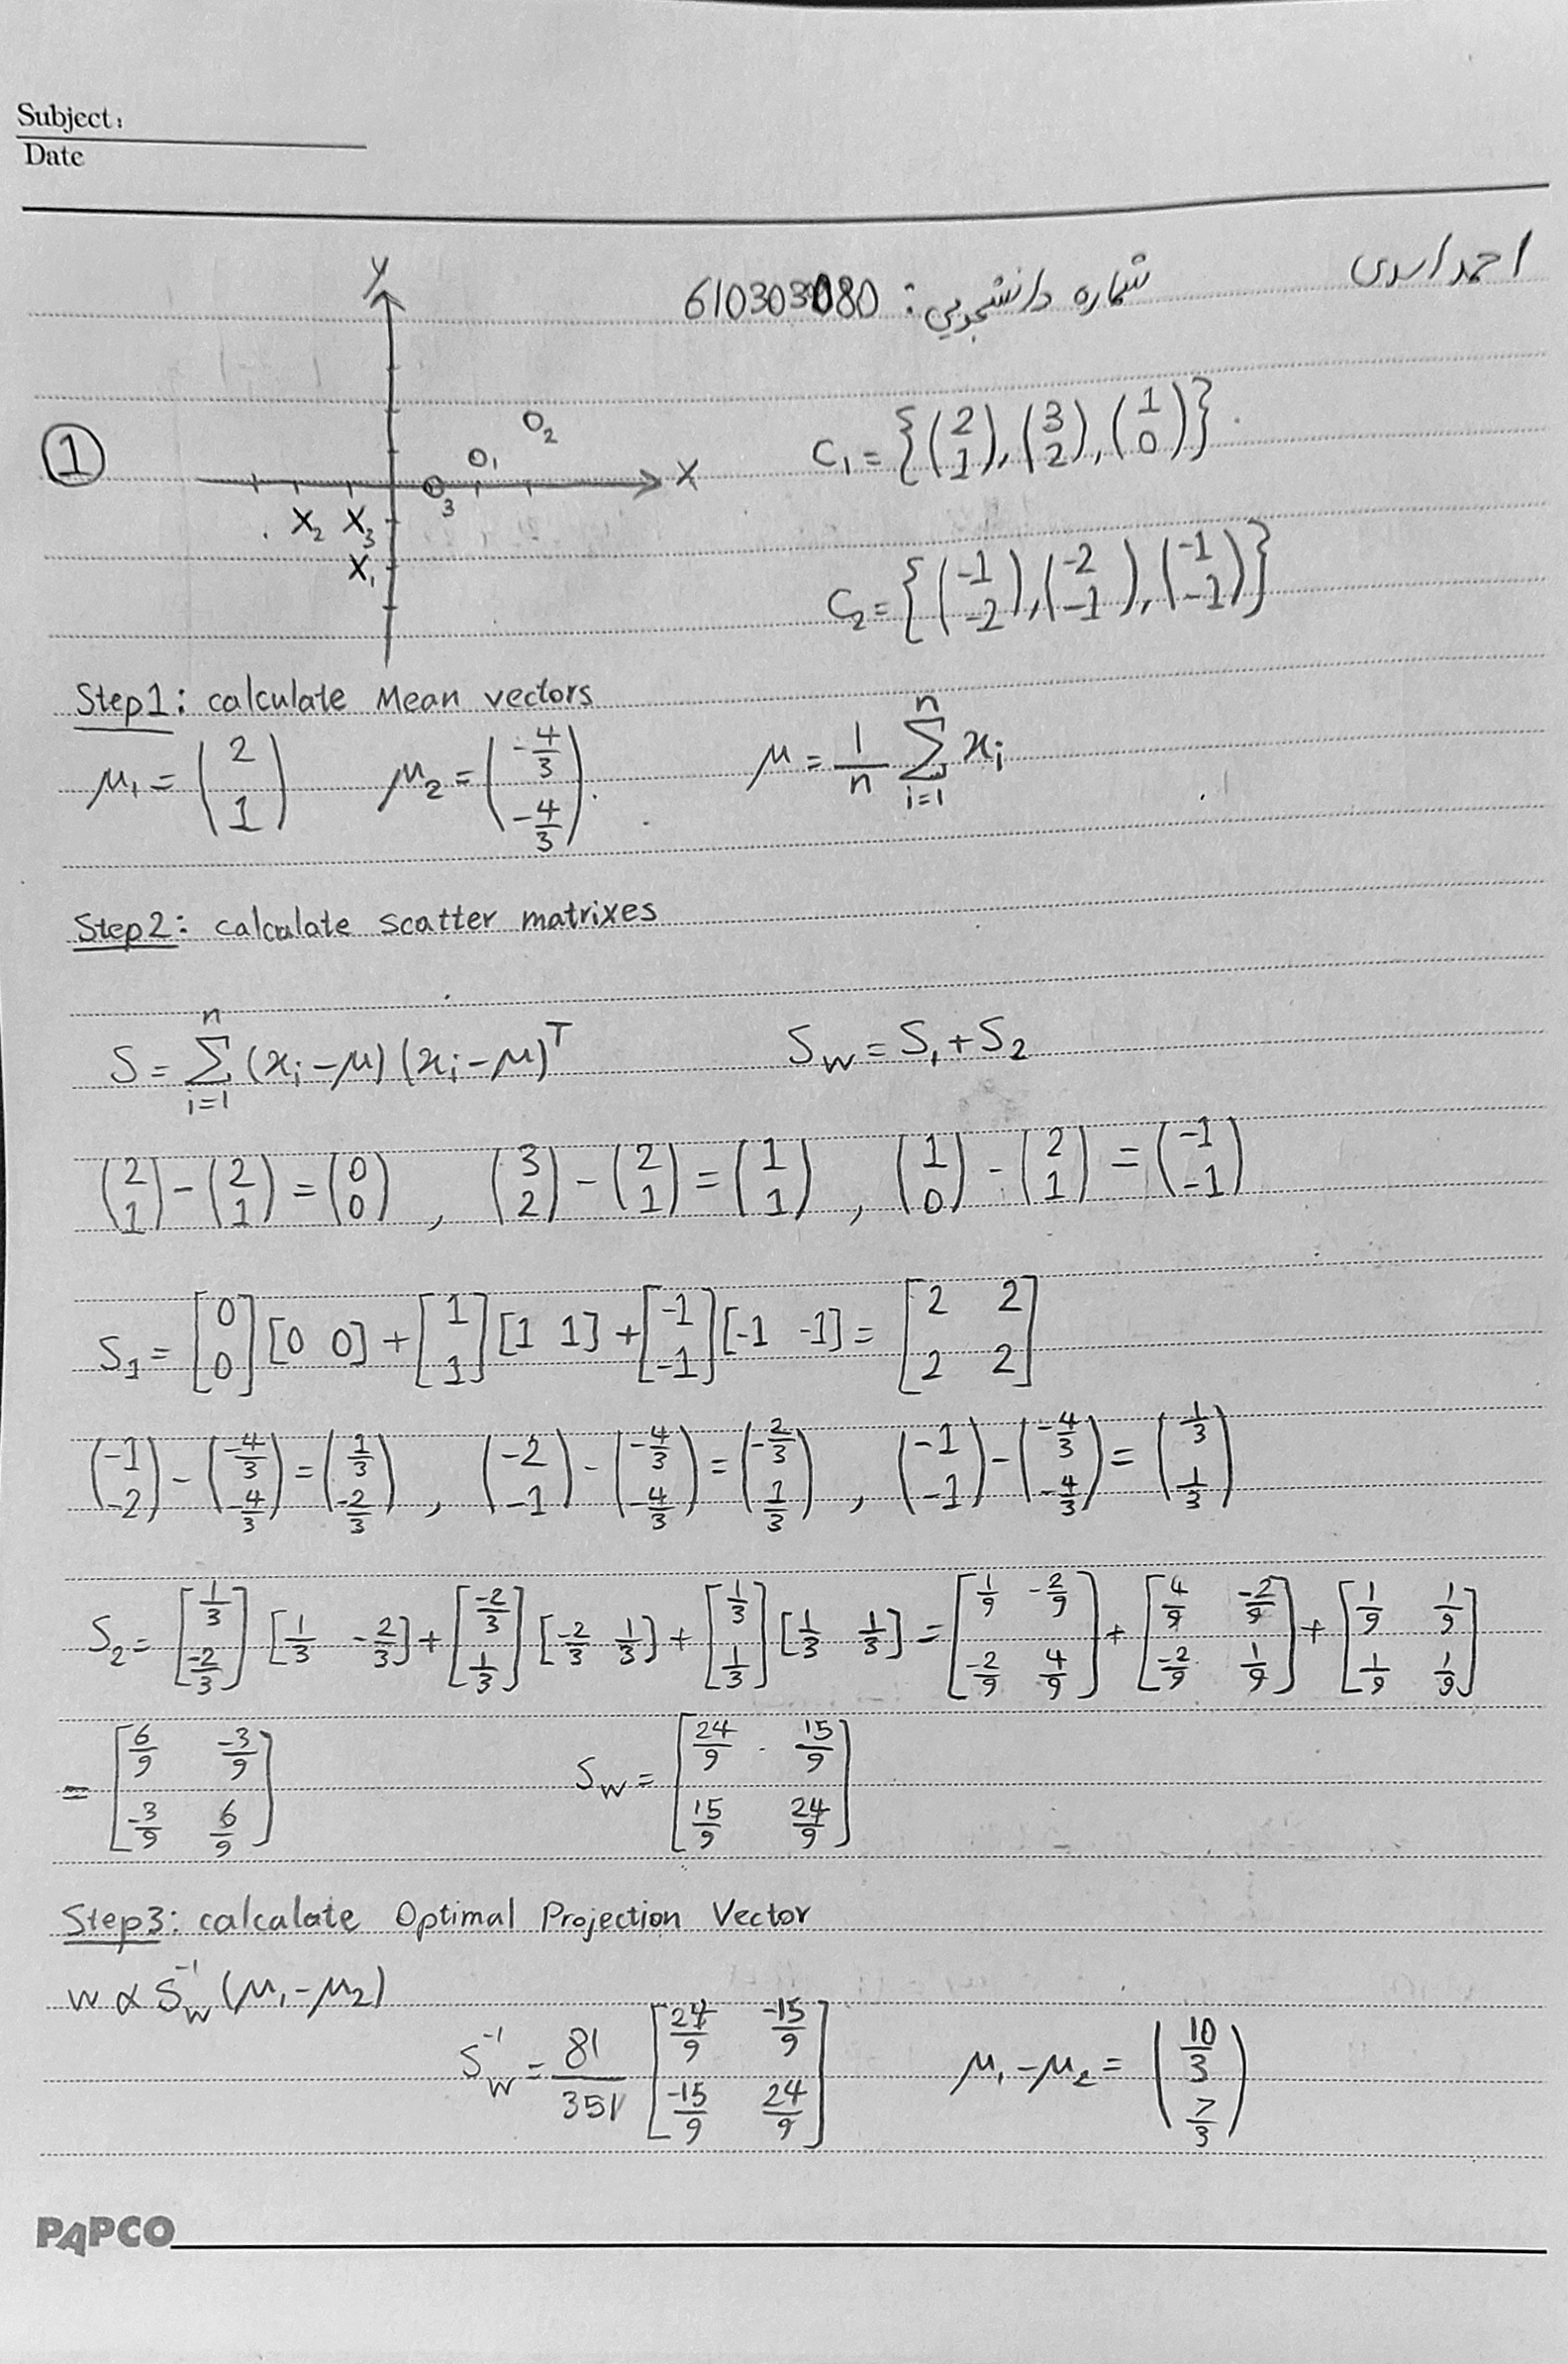 Subject:
Date
احمد اسدی
شماره دانشجویی: 610303080
Y
X
①
O₁ O₂ O₃
X₂ X₃
X₁
C₁ = {(2 1), (3 2), (1 0)}
C₂ = {(-1 -2), (-2 -1), (-1 -1)}
Step1: calculate Mean vectors
μ₁ = (2 1) μ₂ = (-4/3 -4/3) μ = 1/n Σ_{i=1}^{n} xᵢ
Step2: calculate scatter matrixes
S = Σ_{i=1}^{n} (xᵢ - μ)(xᵢ - μ)ᵀ S_W = S₁ + S₂
(2 1) - (2 1) = (0 0), (3 2) - (2 1) = (1 1), (1 0) - (2 1) = (-1 -1)
S₁ = [0 0][0 0] + [1 1][1 1] + [-1 -1][-1 -1] = [2 2 2 2]
(-1 -2) - (-4/3 -4/3) = (1/3 -2/3), (-2 -1) - (-4/3 -4/3) = (-2/3 1/3), (-1 -1) - (-4/3 -4/3) = (1/3 1/3)
S₂ = [1/3 -2/3][1/3 -2/3] + [-2/3 1/3][-2/3 1/3] + [1/3 1/3][1/3 1/3] = [1/9 -2/9 -2/9 4/9] + [4/9 -2/9 -2/9 1/9] + [1/9 1/9 1/9 1/9]
= [6/9 -3/9 -3/9 6/9] S_W = [24/9 15/9 15/9 24/9]
Step3: calcalate Optimal Projection Vector
w ∝ S_W⁻¹ (μ₁ - μ₂)
S_W⁻¹ = 81/351 [24/9 -15/9 -15/9 24/9] μ₁ - μ₂ = (10/3 7/3)
PAPCO